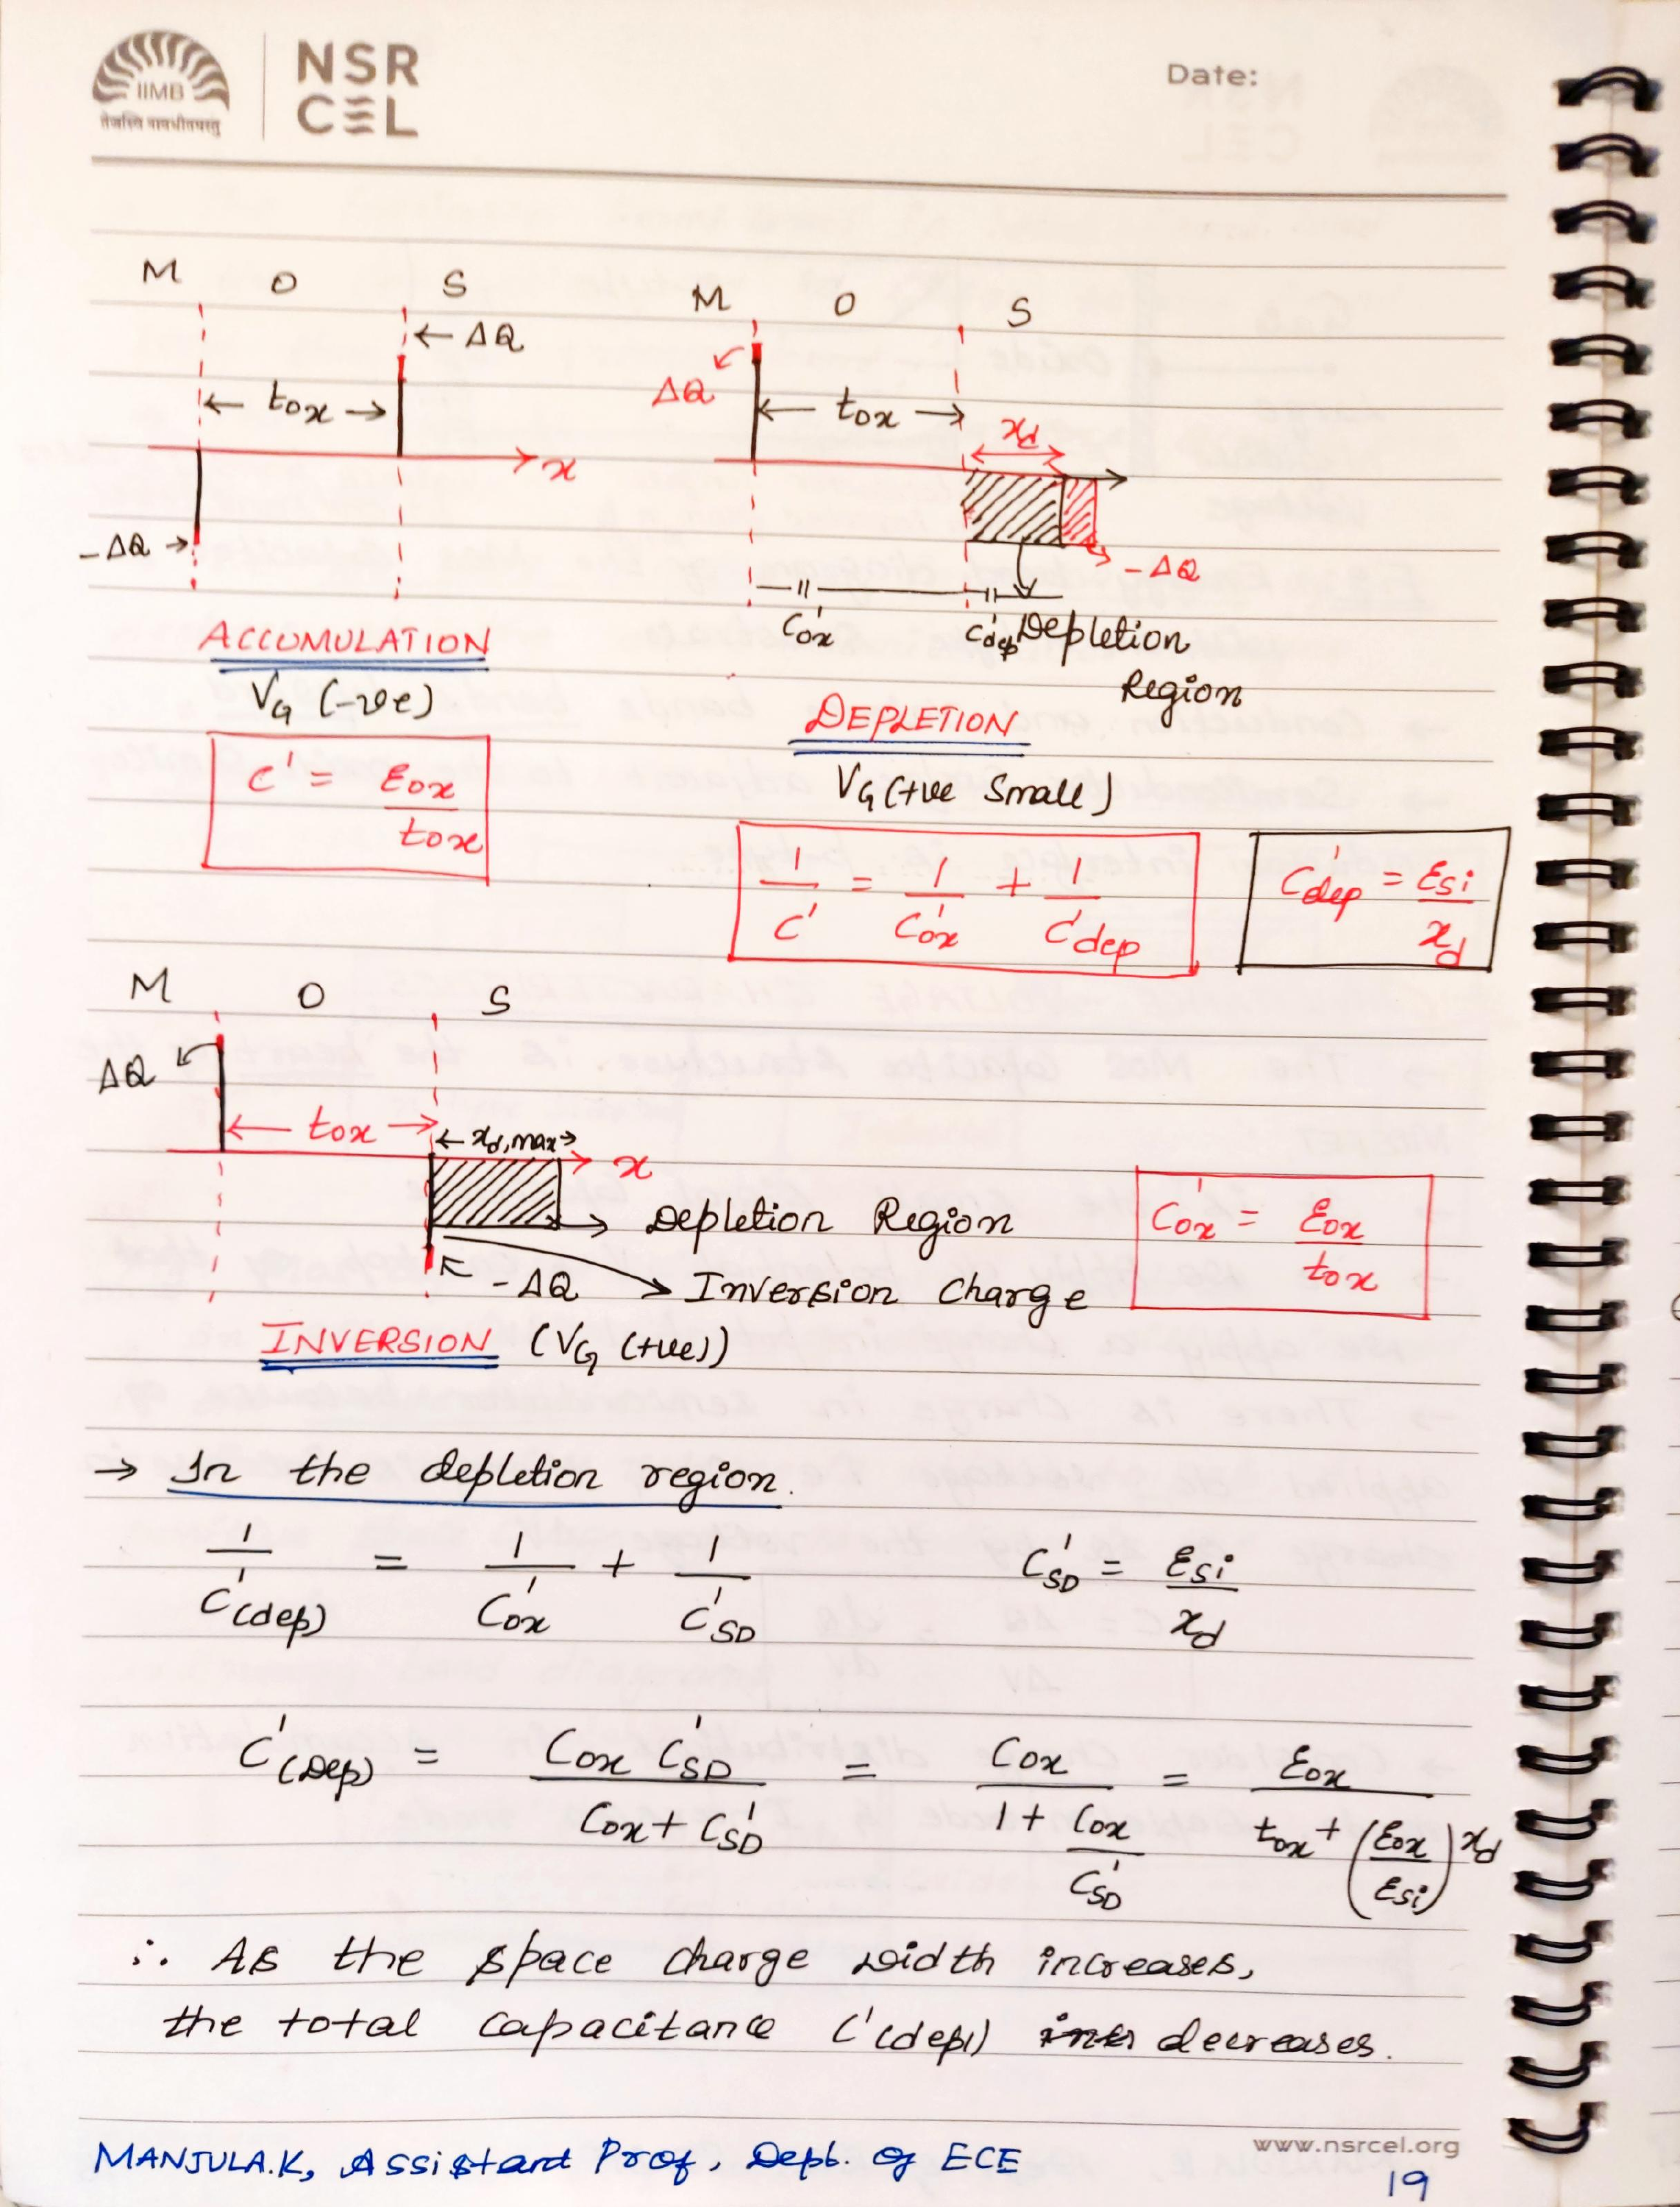 IIMB
तेजस्वि नावधीतमस्तु
NSR
CEL
Date:
M O S
← ΔQ
← tox →
x
-ΔQ →
ACCUMULATION
VG (-ve)
C' = εox / tox
M O S
ΔQ
← tox →
xd
-ΔQ
C'ox
C'dep
Depletion
Region
DEPLETION
VG (+ve Small)
1/C' = 1/C'ox + 1/C'dep
C'dep = εsi / xd
M O S
ΔQ
← tox →
← xd,max →
x
→ Depletion Region
-ΔQ → Inversion Charge
C'ox = εox / tox
INVERSION (VG (+ve))
→ In the depletion region.
1/C'(dep) = 1/C'ox + 1/C'SD
C'SD = εsi / xd
C'(Dep) = Cox C'SD / (Cox + C'SD) = Cox / (1 + Cox/C'SD) = εox / (tox + (εox/εsi) xd)
∴ As the space charge width increases,
the total capacitance C'(depl) decreases.
MANJULA.K, Assistant Prof, Dept. of ECE
www.nsrcel.org
19